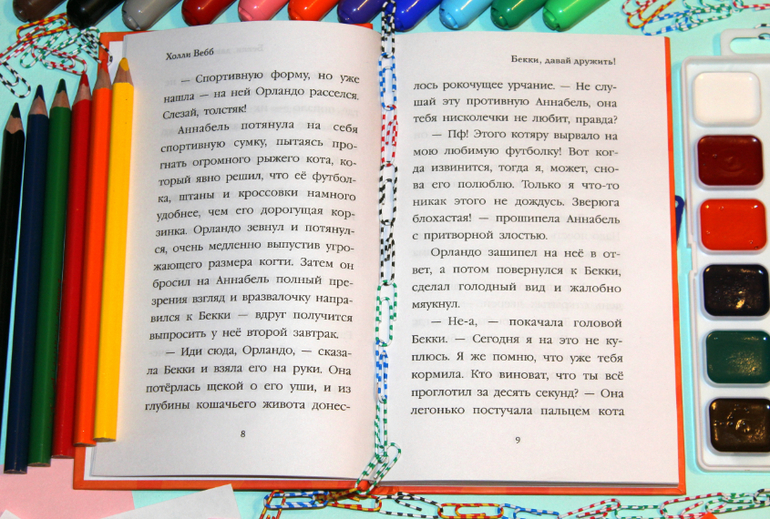 Холли Вебб
— Спортивную форму, но уже
нашла — на ней Орландо расселся.
Слезай, толстяк!
Аннабель потянула на себя
спортивную сумку, пытаясь про-
гнать огромного рыжего кота, ко-
торый явно решил, что её футбол-
ка, штаны и кроссовки намного
удобнее, чем его дорогущая кор-
зинка. Орландо зевнул и потянул-
ся, очень медленно выпустив угро-
жающего размера когти. Затем он
бросил на Аннабель полный пре-
зрения взгляд и вразвалочку напра-
вился к Бекки — вдруг получится
выпросить у неё второй завтрак.
— Иди сюда, Орландо, — сказа-
ла Бекки и взяла его на руки. Она
потёрлась щекой о его уши, и из
глубины кошачьего живота донес-
8
Бекки, давай дружить!
лось рокочущее урчание. — Не слу-
шай эту противную Аннабель, она
тебя нисколечки не любит, правда?
— Пф! Этого котяру вырвало на
мою любимую футболку! Вот ког-
да извинится, тогда я, может, сно-
ва его полюблю. Только я что-то
никак этого не дождусь. Зверюга
блохастая! — прошипела Аннабель
с притворной злостью.
Орландо зашипел на неё в от-
вет, а потом повернулся к Бекки,
сделал голодный вид и жалобно
мяукнул.
— Не-а, — покачала головой
Бекки. — Сегодня я на это не ку-
плюсь. Я же помню, что уже тебя
кормила. Кто виноват, что ты всё
проглотил за десять секунд? — Она
легонько постучала пальцем кота
9